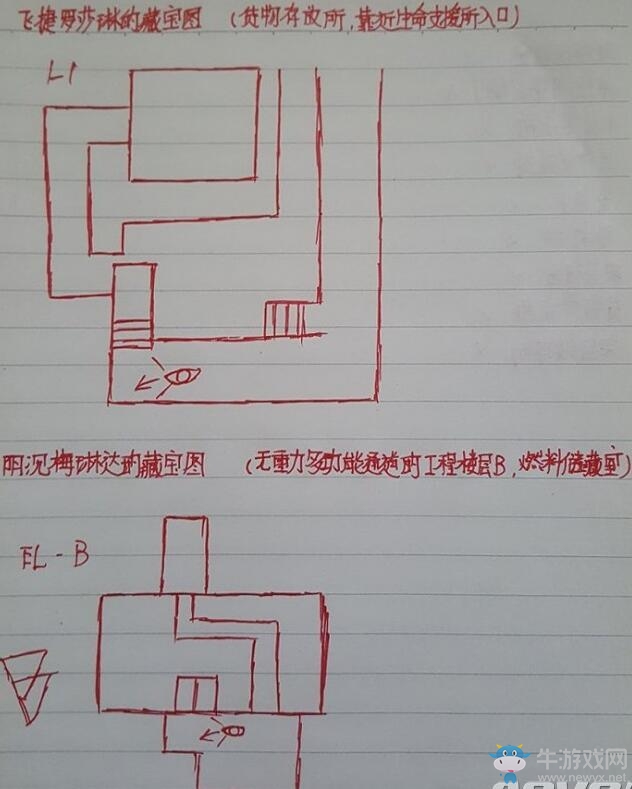 飞捷罗莎琳的藏宝图 (货物存放所,靠近生命支援所入口)
L1
阴沉梅琳达的藏宝图 (无重力多功能通道的工程楼层B,燃料储藏室)
EL-B
牛游戏网
www.newyx.net